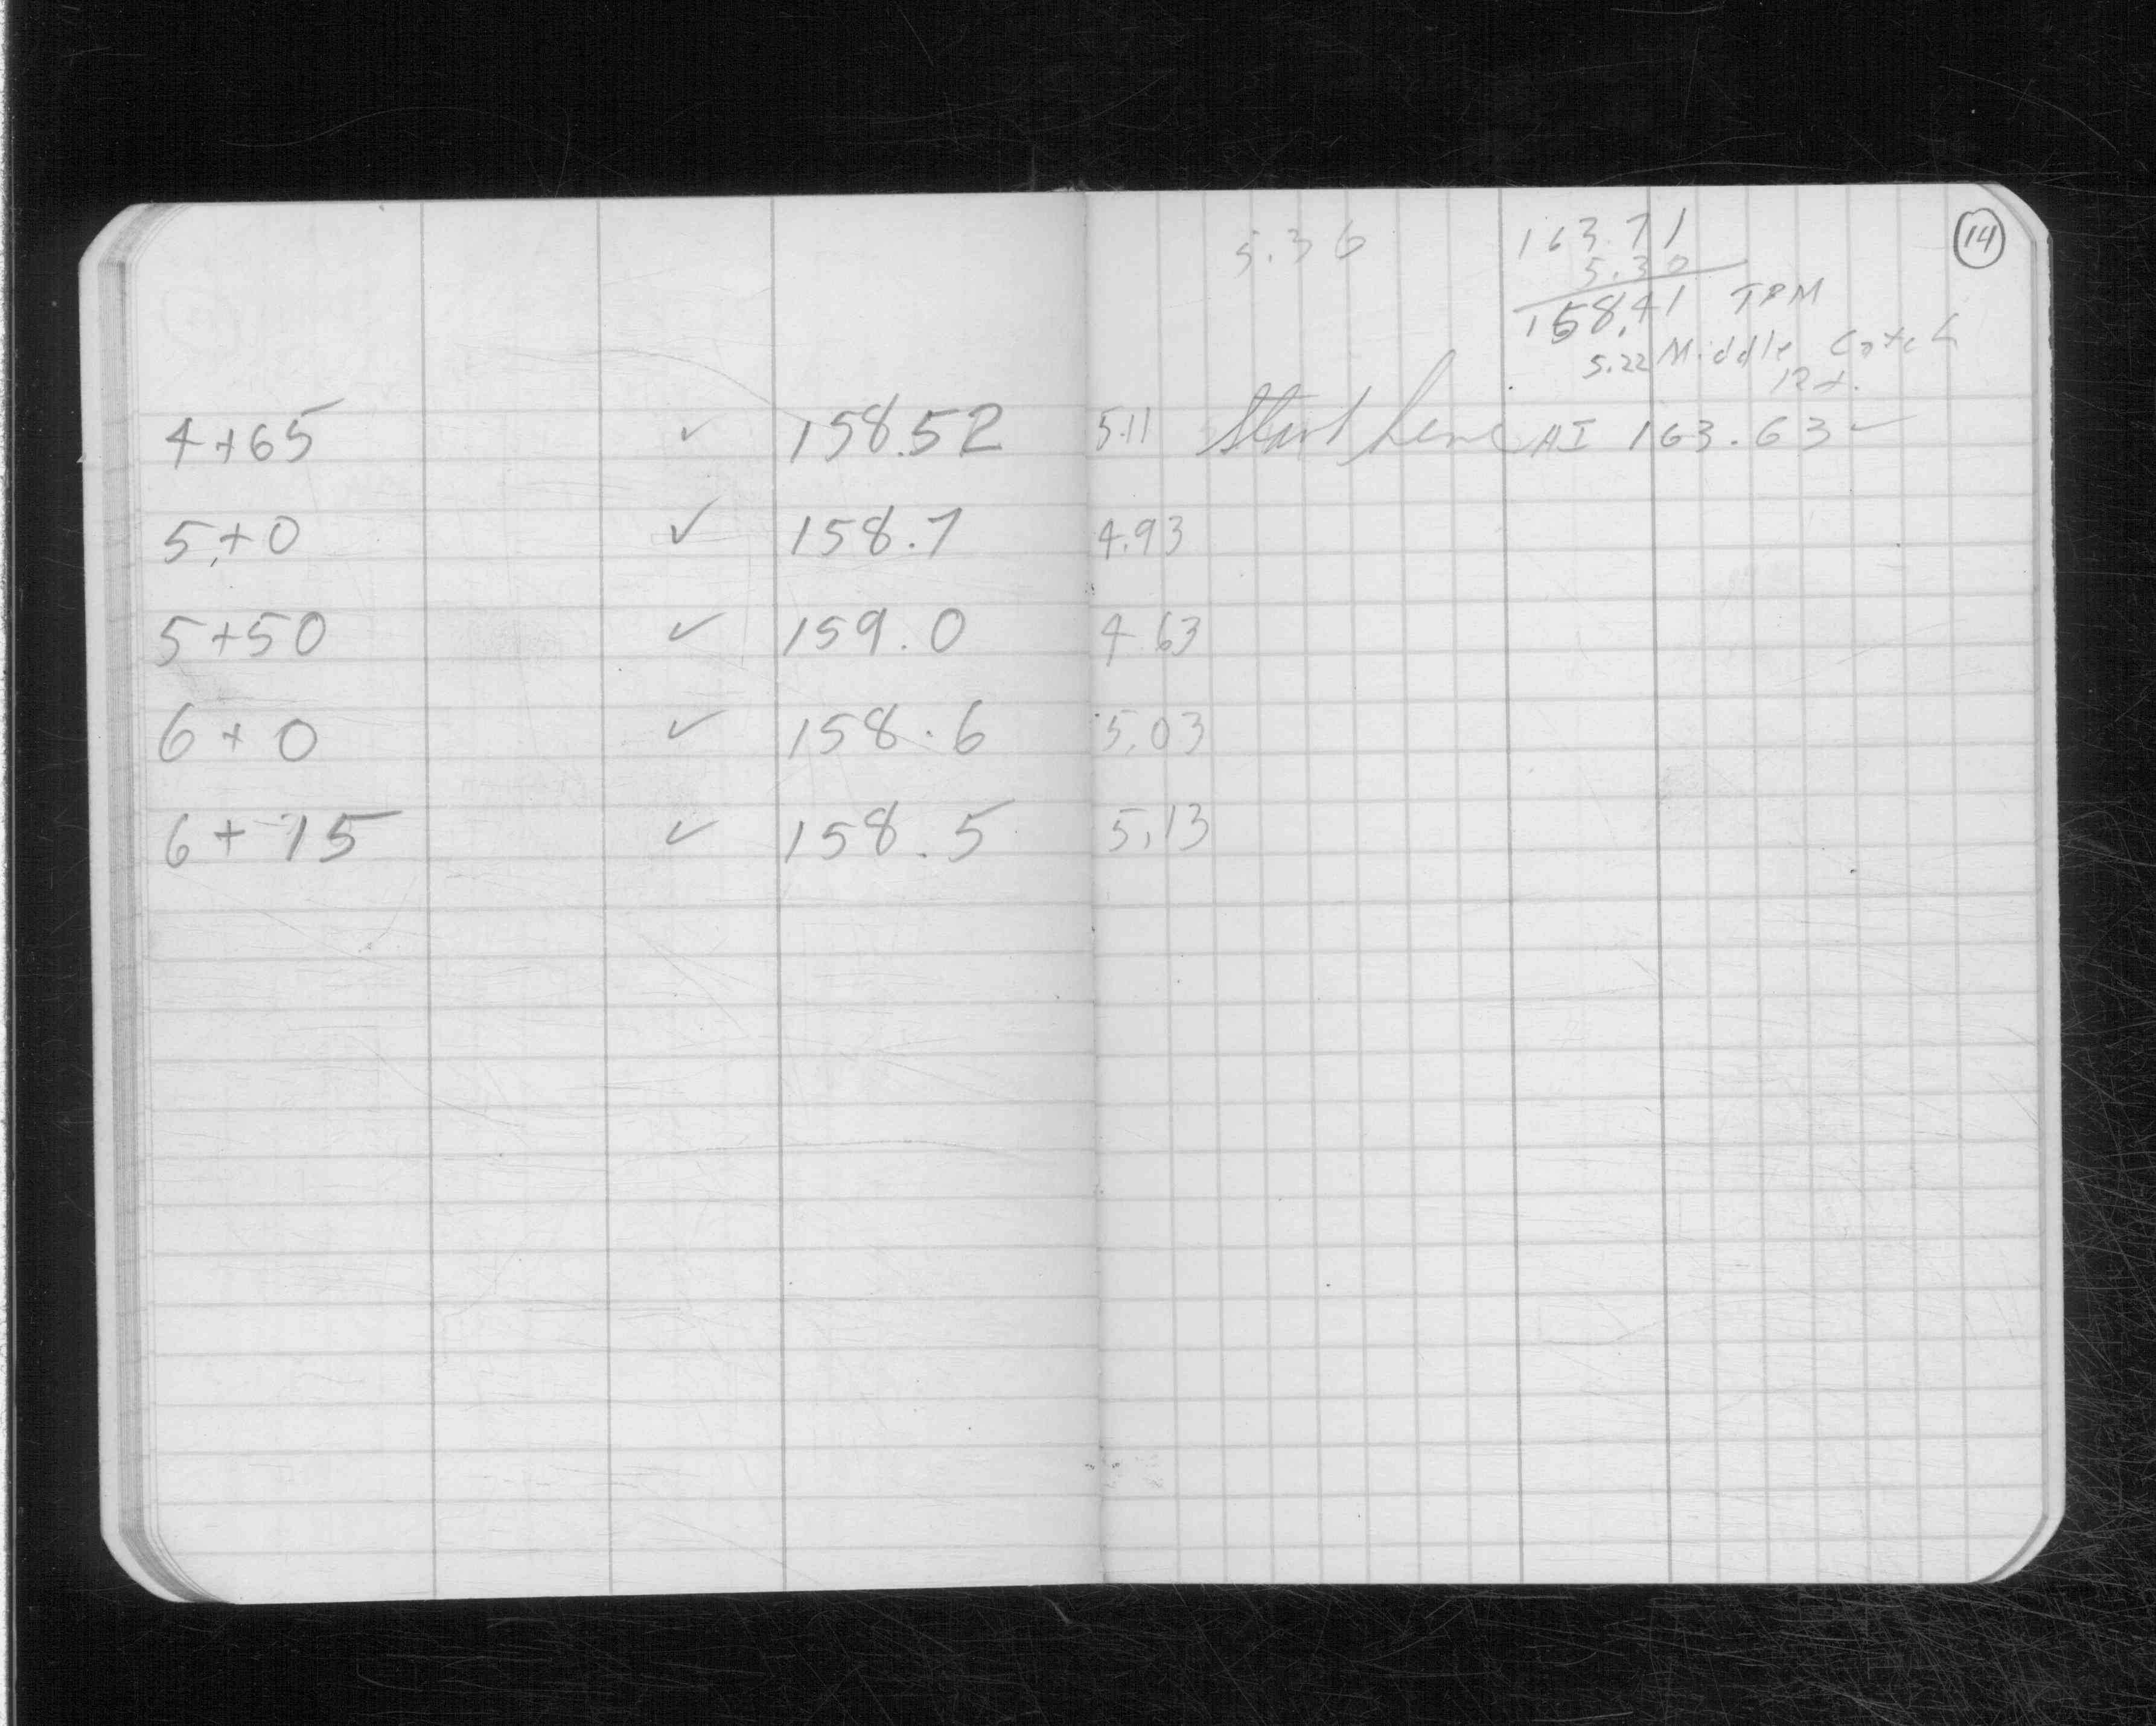 5.36 163.71 14
5.30
158.41 TPM
5.22 Middle Catch
4+65 ✓ 158.52 5.11 Start here HI 163.63 ✓
5+0 ✓ 158.7 4.93
5+50 ✓ 159.0 4.63
6+0 ✓ 158.6 5.03
6+75 ✓ 158.5 5.13